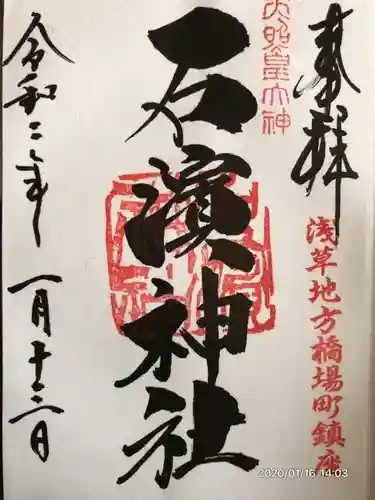 奉拝
浅草地方橋場町鎮座
天照皇大神
石濱神社
令和二年
一月十二日
2020/01/16 14:03